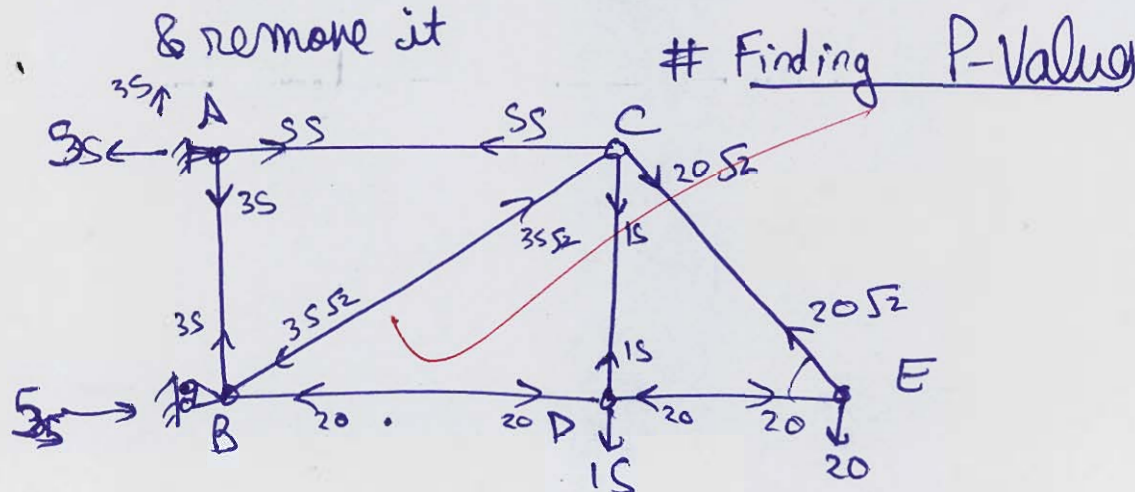 & remove it
# Finding P-Value
35 A 55 55 C
35 35 20√2
35√2 15
35 35√2 20√2
15 E
55 B 20 20 D 20 20
15 20